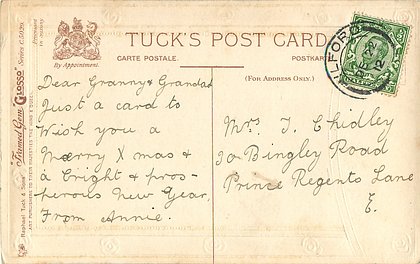 TUCK'S POST CARD
CARTE POSTALE.
POSTKARTE
By Appointment.
(FOR ADDRESS ONLY.)
"Framed Gem "GLOSSO" Series C.5029.
Raphael Tuck & Sons'
ART PUBLISHERS TO THEIR MAJESTIES THE KING & QUEEN.
ILFORD
12
Dear Granny & Grandad
Just a card to
Wish you a
Merry Xmas &
a bright & pros-
perous New Year,
From Annie.
Mrs J. Chidley
20 Bingley Road
Prince Regents Lane
E.